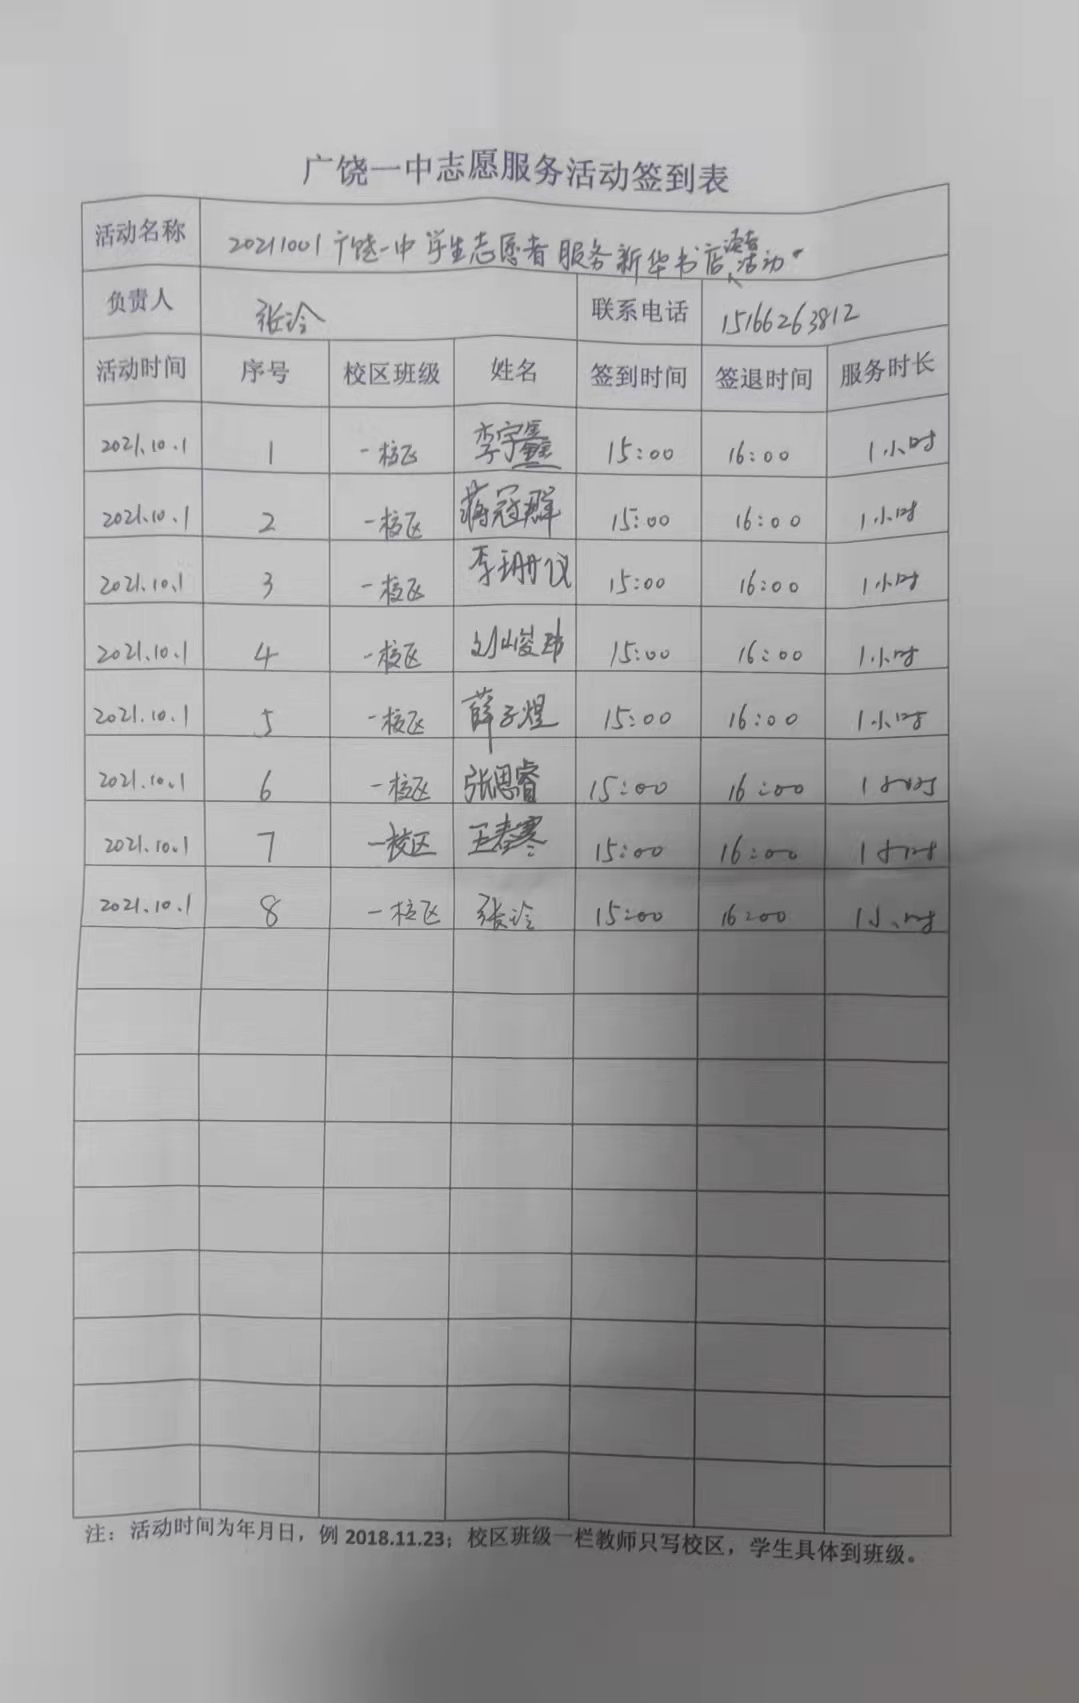 广饶一中志愿服务活动签到表
活动名称 20211001广饶一中学生志愿者服务新华书店读者活动
负责人 张冷 联系电话 15166263812
活动时间 序号 校区班级 姓名 签到时间 签退时间 服务时长
2021.10.1 1 一校区 李宇鑫 15:00 16:00 1小时
2021.10.1 2 一校区 蒋冠群 15:00 16:00 1小时
2021.10.1 3 一校区 李珊仪 15:00 16:00 1小时
2021.10.1 4 一校区 刘峻玮 15:00 16:00 1小时
2021.10.1 5 一校区 薛子煜 15:00 16:00 1小时
2021.10.1 6 一校区 张思睿 15:00 16:00 1小时
2021.10.1 7 一校区 王春寒 15:00 16:00 1小时
2021.10.1 8 一校区 张冷 15:00 16:00 1小时
注：活动时间为年月日，例 2018.11.23；校区班级一栏教师只写校区，学生具体到班级。